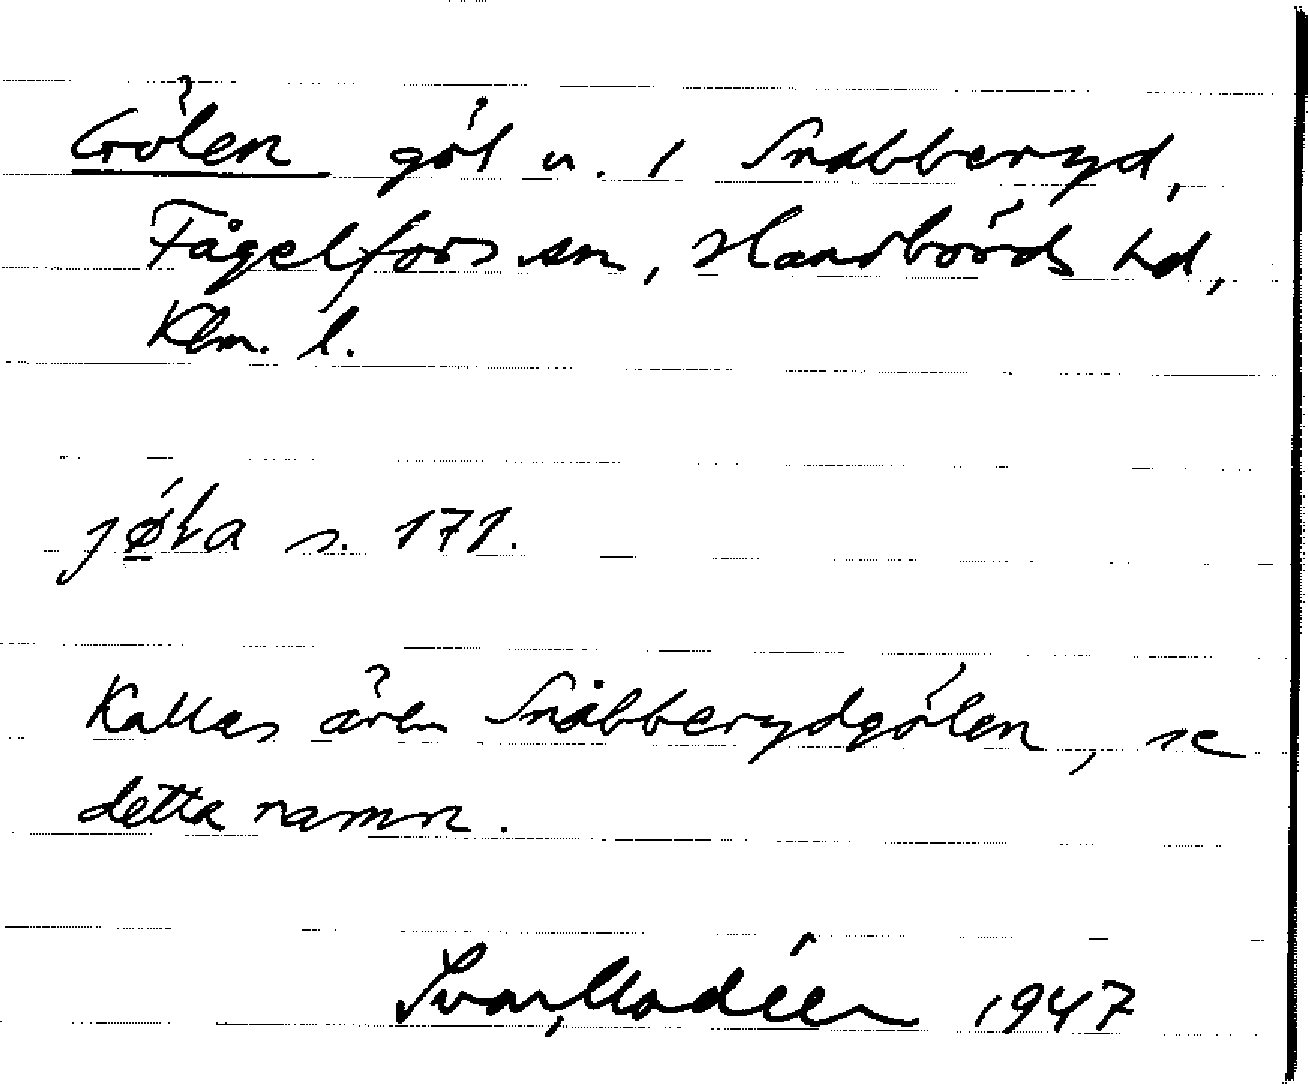 Gölen göl u. 1 Snabberyd,
Fågelfors sn, Handbörds hd,
Klm. l.
jǿ̱ɫa s. 171.
Kallas även Snåbberydgölen, se
detta namn.
Ivar Modéer 1947